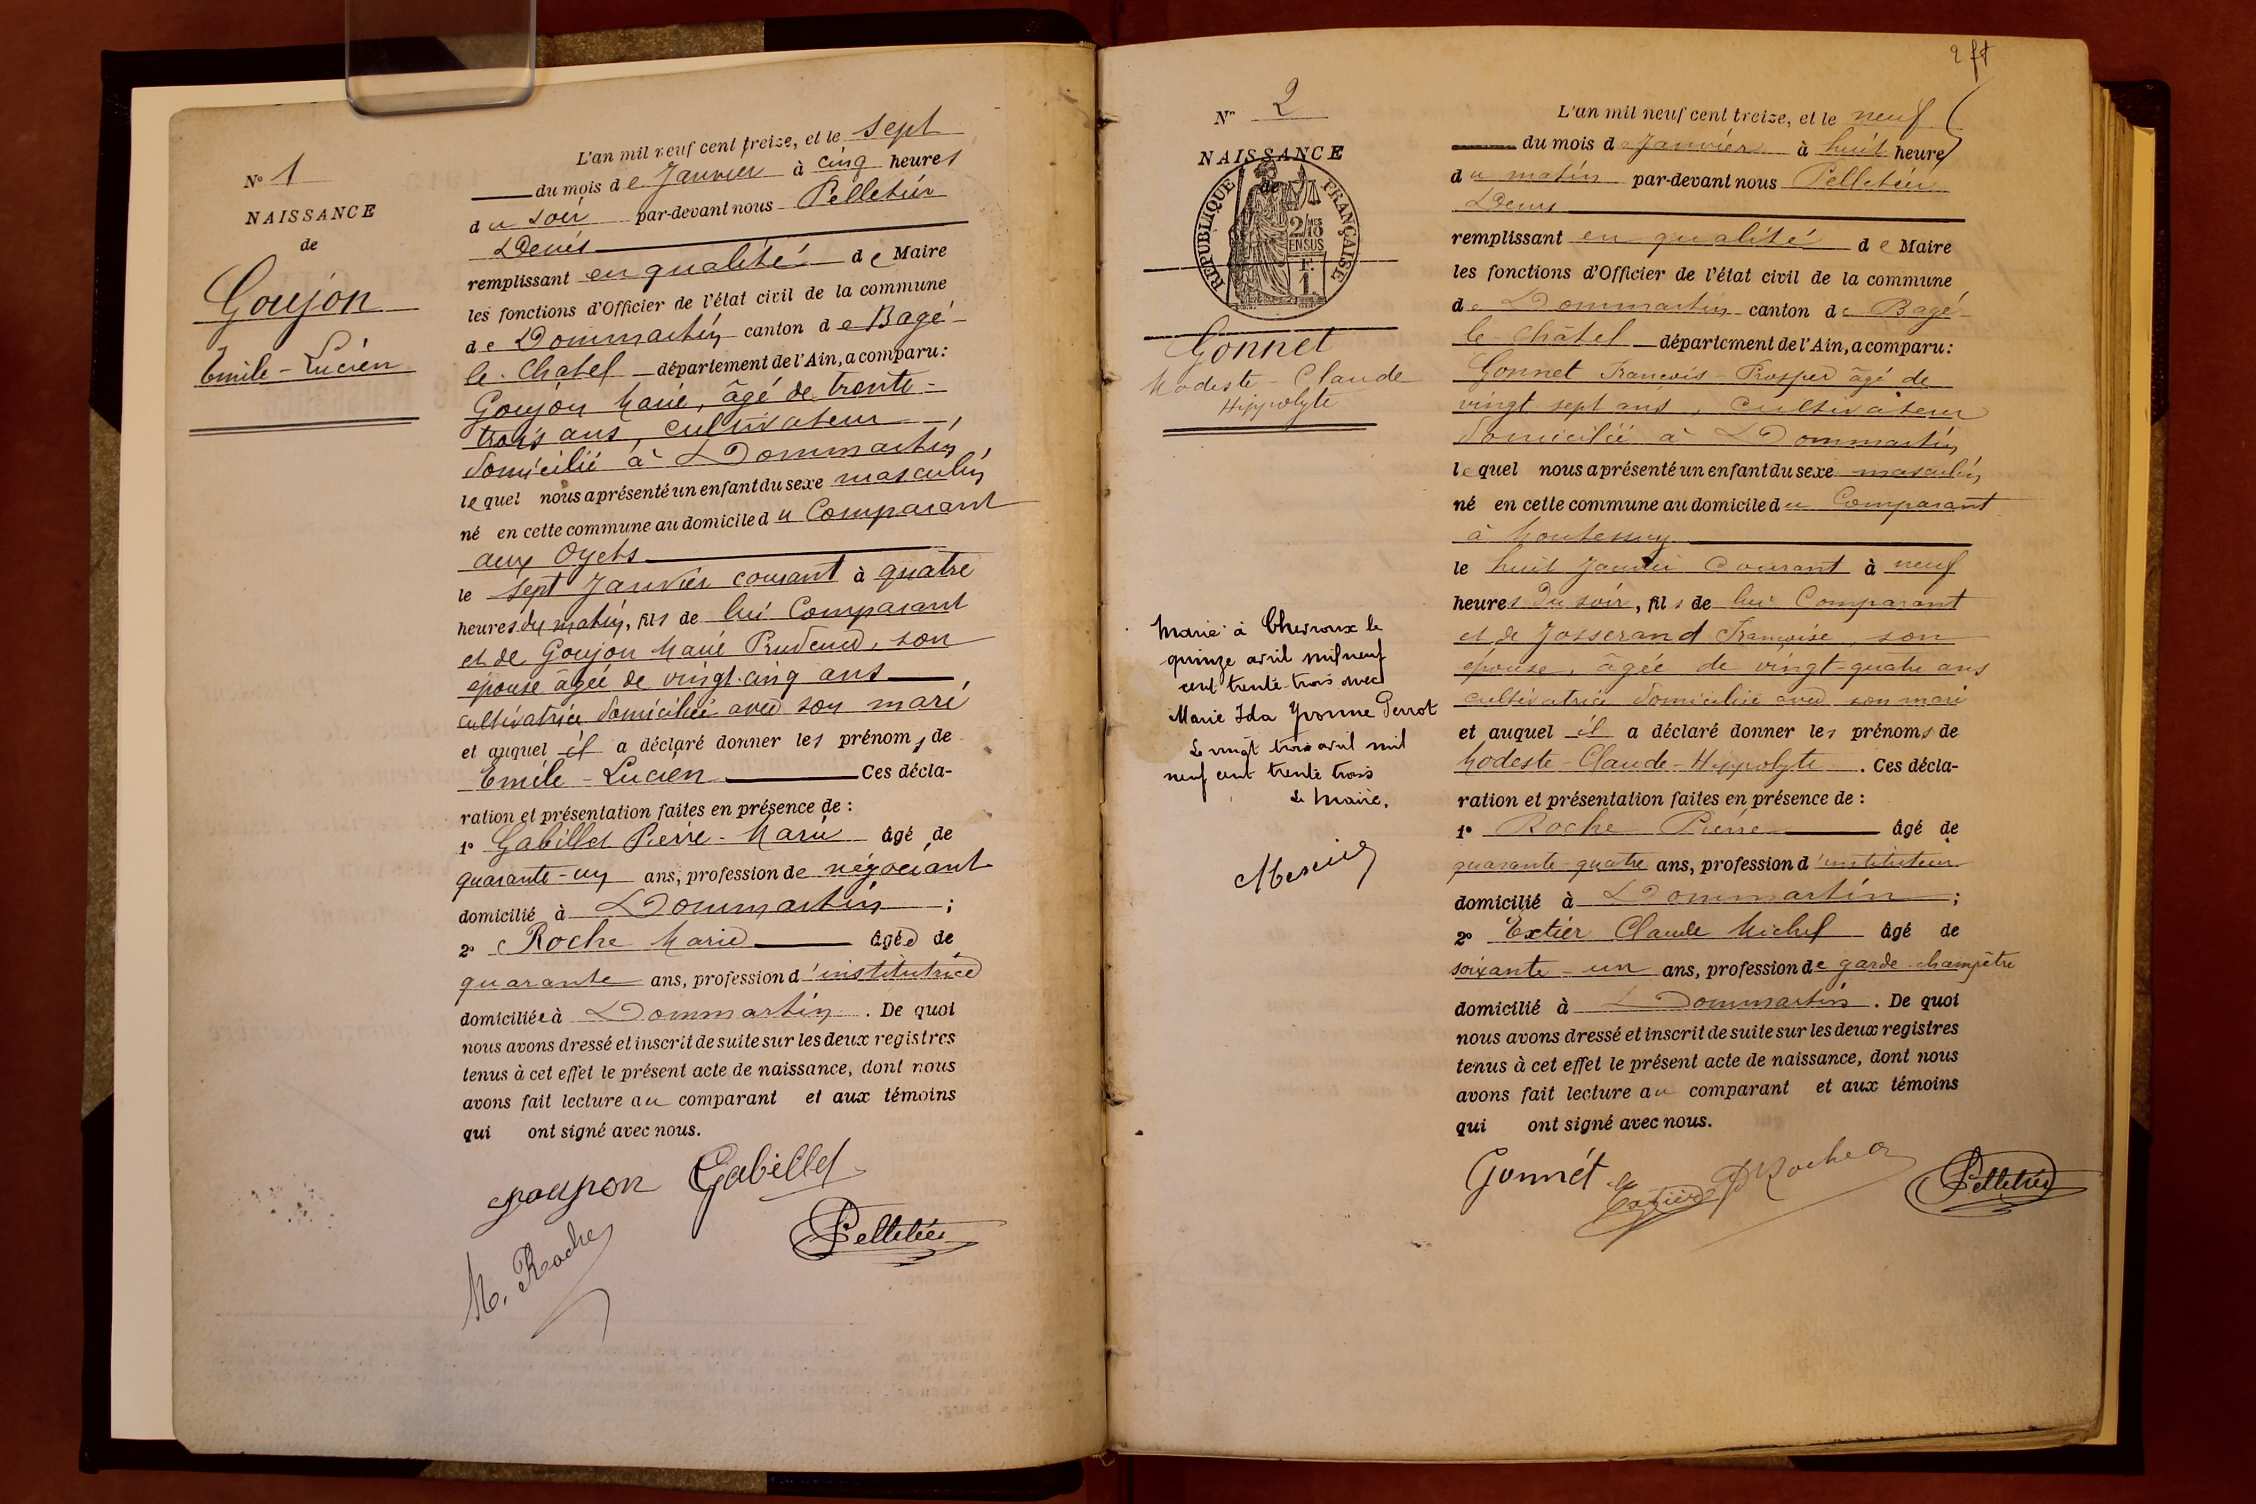 N° 1
NAISSANCE
de
Goujon
Emile - Lucien
L'an mil neuf cent treize, et le sept
du mois de Janvier à cinq heures
du soir par-devant nous Pelletier
Denis
remplissant en qualité de Maire
les fonctions d'Officier de l'état civil de la commune
de Dommartin canton de Bagé-
le-Chatel département de l'Ain, a comparu:
Goujon Marie, âgé de trente-
trois ans, cultivateur,
domicilié à Dommartin
lequel nous a présenté un enfant du sexe masculin
né en cette commune au domicile du Comparant
aux Oyets
le sept Janvier courant à quatre
heures du matin, fils de lui Comparant
et de Goujon Marie Prudence, son
épouse âgée de vingt-cinq ans
cultivatrice domiciliée avec son mari
et auquel il a déclaré donner les prénoms de
Emile - Lucien Ces décla-
ration et présentation faites en présence de :
1° Gabillet Pierre - Marie âgé de
quarante-un ans, profession de négociant
domicilié à Dommartin ;
2° Roche Marie âgée de
quarante ans, profession d'institutrice
domiciliée à Dommartin. De quoi
nous avons dressé et inscrit de suite sur les deux registres
tenus à cet effet le présent acte de naissance, dont nous
avons fait lecture au comparant et aux témoins
qui ont signé avec nous.
goujon Gabillet
M. Roche Pelletier
N° 2
NAISSANCE
de
RÉPUBLIQUE FRANÇAISE
2/10MES
EN SUS
1 F.
Gonnet
Modeste - Claude
Hippolyte
Marié à Chevroux le
quinze avril mil neuf
cent trente-trois avec
Marie Ida Yvonne Perrot
Le vingt trois avril mil
neuf cent trente trois
Le Maire,
L'an mil neuf cent treize, et le neuf
du mois de Janvier à huit heures
du matin par-devant nous Pelletier
Denis
remplissant en qualité de Maire
les fonctions d'Officier de l'état civil de la commune
de Dommartin canton de Bagé-
le-Châtel département de l'Ain, a comparu:
Gonnet François-Prosper âgé de
vingt sept ans, cultivateur
domicilié à Dommartin
lequel nous a présenté un enfant du sexe masculin
né en cette commune au domicile du Comparant
à Montessuy
le huit Janvier Courant à neuf
heures du soir, fils de lui Comparant
et de Josserand Françoise, son
épouse, âgée de vingt-quatre ans
cultivatrice domiciliée avec son mari
et auquel il a déclaré donner les prénoms de
Modeste-Claude-Hippolyte. Ces décla-
ration et présentation faites en présence de :
1° Roche Pierre âgé de
quarante-quatre ans, profession d'instituteur
domicilié à Dommartin ;
2° Extier Claude Michel âgé de
soixante-un ans, profession de garde-champêtre
domicilié à Dommartin. De quoi
nous avons dressé et inscrit de suite sur les deux registres
tenus à cet effet le présent acte de naissance, dont nous
avons fait lecture au comparant et aux témoins
qui ont signé avec nous.
Gonnét Extier PRoche Pelletier